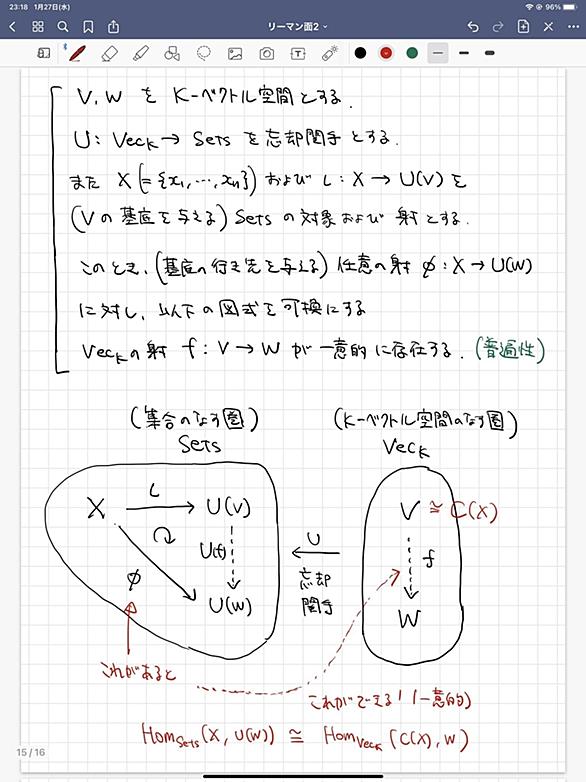 23:18 1月27日(水)
96%
リーマン面2
V, W を K-ベクトル空間とする.
U : VecK → Sets を忘却関手とする.
また X (= {x1, ..., xn}) および L : X → U(V) を
(Vの基底を与える) Sets の対象および射とする.
このとき, (基底の行き先を与える) 任意の射 φ : X → U(W)
に対し, 以下の図式を可換にする
VecKの射 f : V → W が一意的に存在する. (普遍性)
(集合のなす圏)
Sets
(K-ベクトル空間のなす圏)
VecK
X
L
U(V)
U(f)
φ
U(W)
U
忘却
関手
V ≅ C(X)
f
W
これがあると
これができる! (一意的)
HomSets(X, U(W)) ≅ HomVecK(C(X), W)
15 / 16